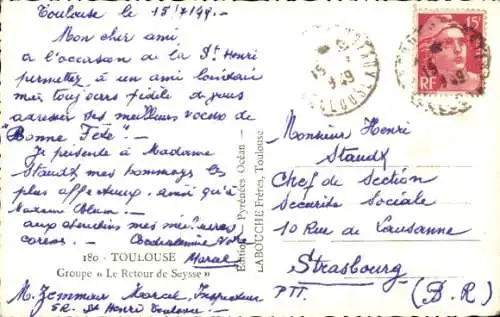 Toulouse le 15/7/49.-
Mon cher ami
a l'occasion de la St Henri
permettez à un ami lointain
mais toujours fidèle de vous
adresser ses meilleurs voeux de
"Bonne Fête".-
Je présente à Madame
Staudt mes hommages les
plus affectueux. ainsi qu'à
aux cherubins mes meilleures
Cordialement Votre
Marcel
180 - TOULOUSE
Groupe « Le Retour de Seysse »
M. Zemmour Marcel, Inspecteur
St Henri Toulouse.-
Editions Pyrénées Océan -
LABOUCHE Frères, Toulouse
15F
RF
Monsieur Henri
Staudt
Chef de Section
Sécurité Sociale
10 Rue de Lausanne
Strasbourg
PTT. (B.R)